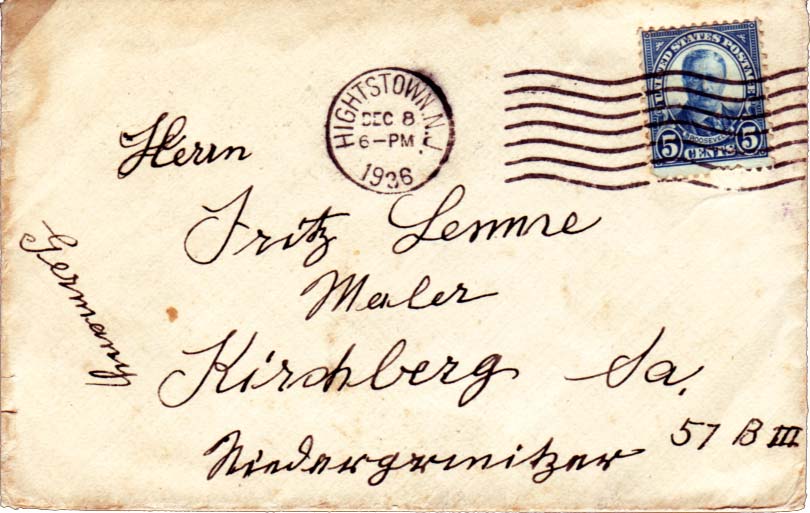 HIGHTSTOWN, N.J.
DEC 8
6-PM
1936
UNITED STATES POSTAGE
ROOSEVELT
5 CENTS 5
Herrn
Fritz Lemme
Maler
Kirchberg Sa.
57 B III
Germany